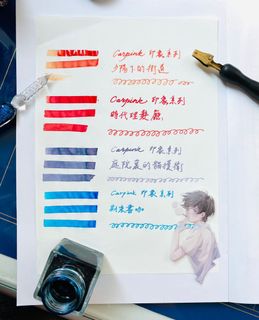 Carpink 印象系列
夕陽下的街道
Carpink 印象系列
時代理髮廳
Carpink 印象系列
庭院裏的貓摸街
Carpink 印象系列
别來書咖